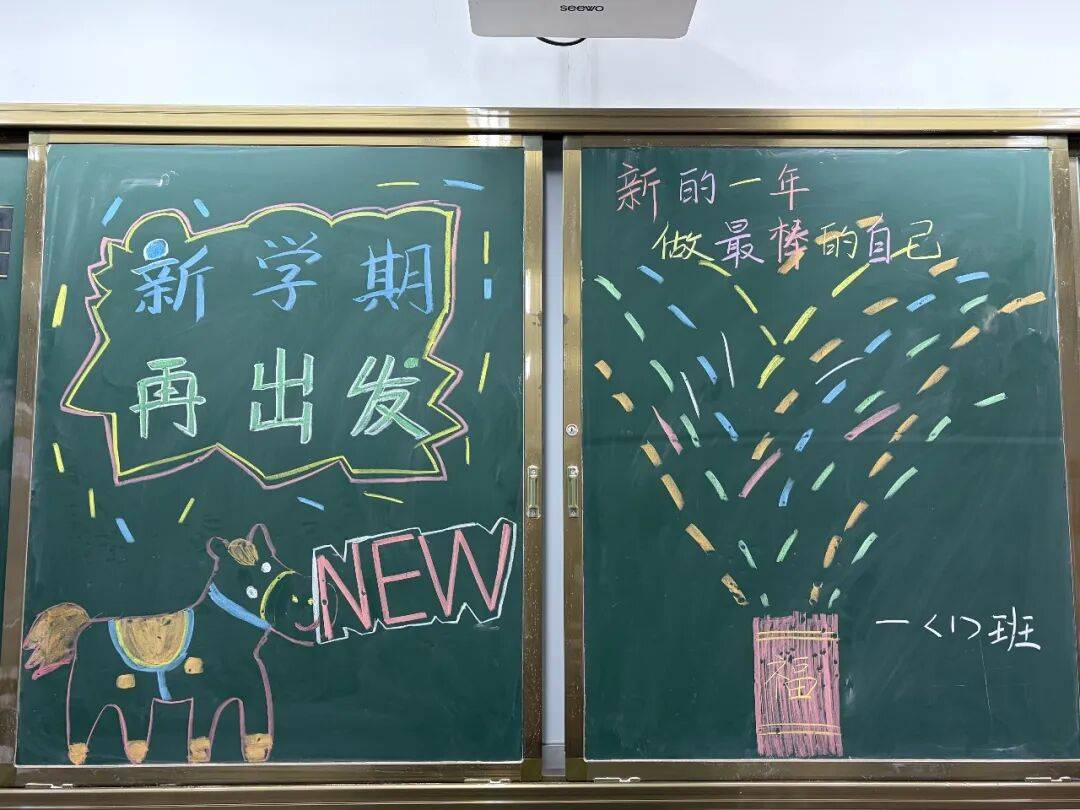 seewo
新学期
再出发
NEW
新的一年
做最棒的自己
福
一<1>班